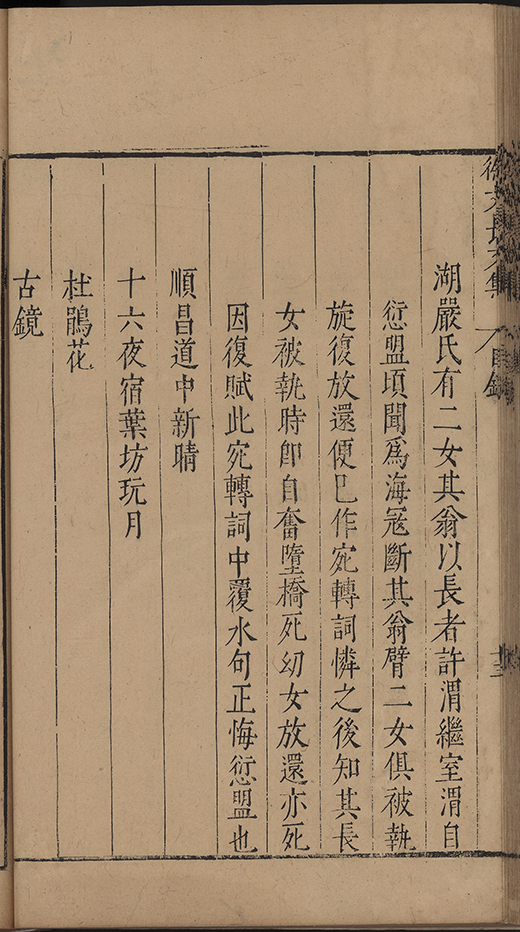 徐文長文集 目錄
湖嚴氏有二女其翁以長者許渭繼室渭自
愆盟頃聞爲海冦斷其翁臂二女俱被執
旋復放還便已作宛轉詞憐之後知其長
女被執時卽自奮墮橋死幼女放還亦死
因復賦此宛轉詞中覆水句正悔愆盟也
順昌道中新晴
十六夜宿葉坊玩月
杜鵑花
古鏡